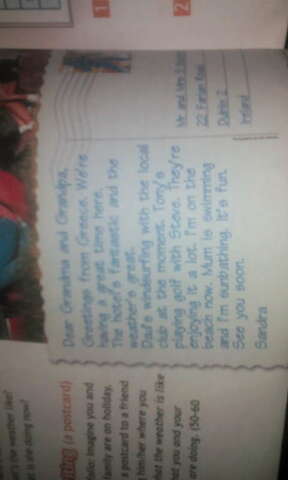 1
2
Dear Grandma and Grandpa,
Greetings from Greece. We're
having a great time here.
The hotel's fantastic and the
weather's great.
Dad's windsurfing with the local
club at the moment. Tony's
playing golf with Steve. They're
enjoying it a lot. I'm on the
beach now. Mum is swimming
and I'm sunbathing. It's fun.
See you soon.
Sandra
Mr and Mrs
22
Dublin 2
Ireland
(a postcard)
Imagine you and
family are on holiday.
a postcard to a friend
him/her where you
what the weather is like
what you and your
are doing. (50-60
the weather like?
doing now?